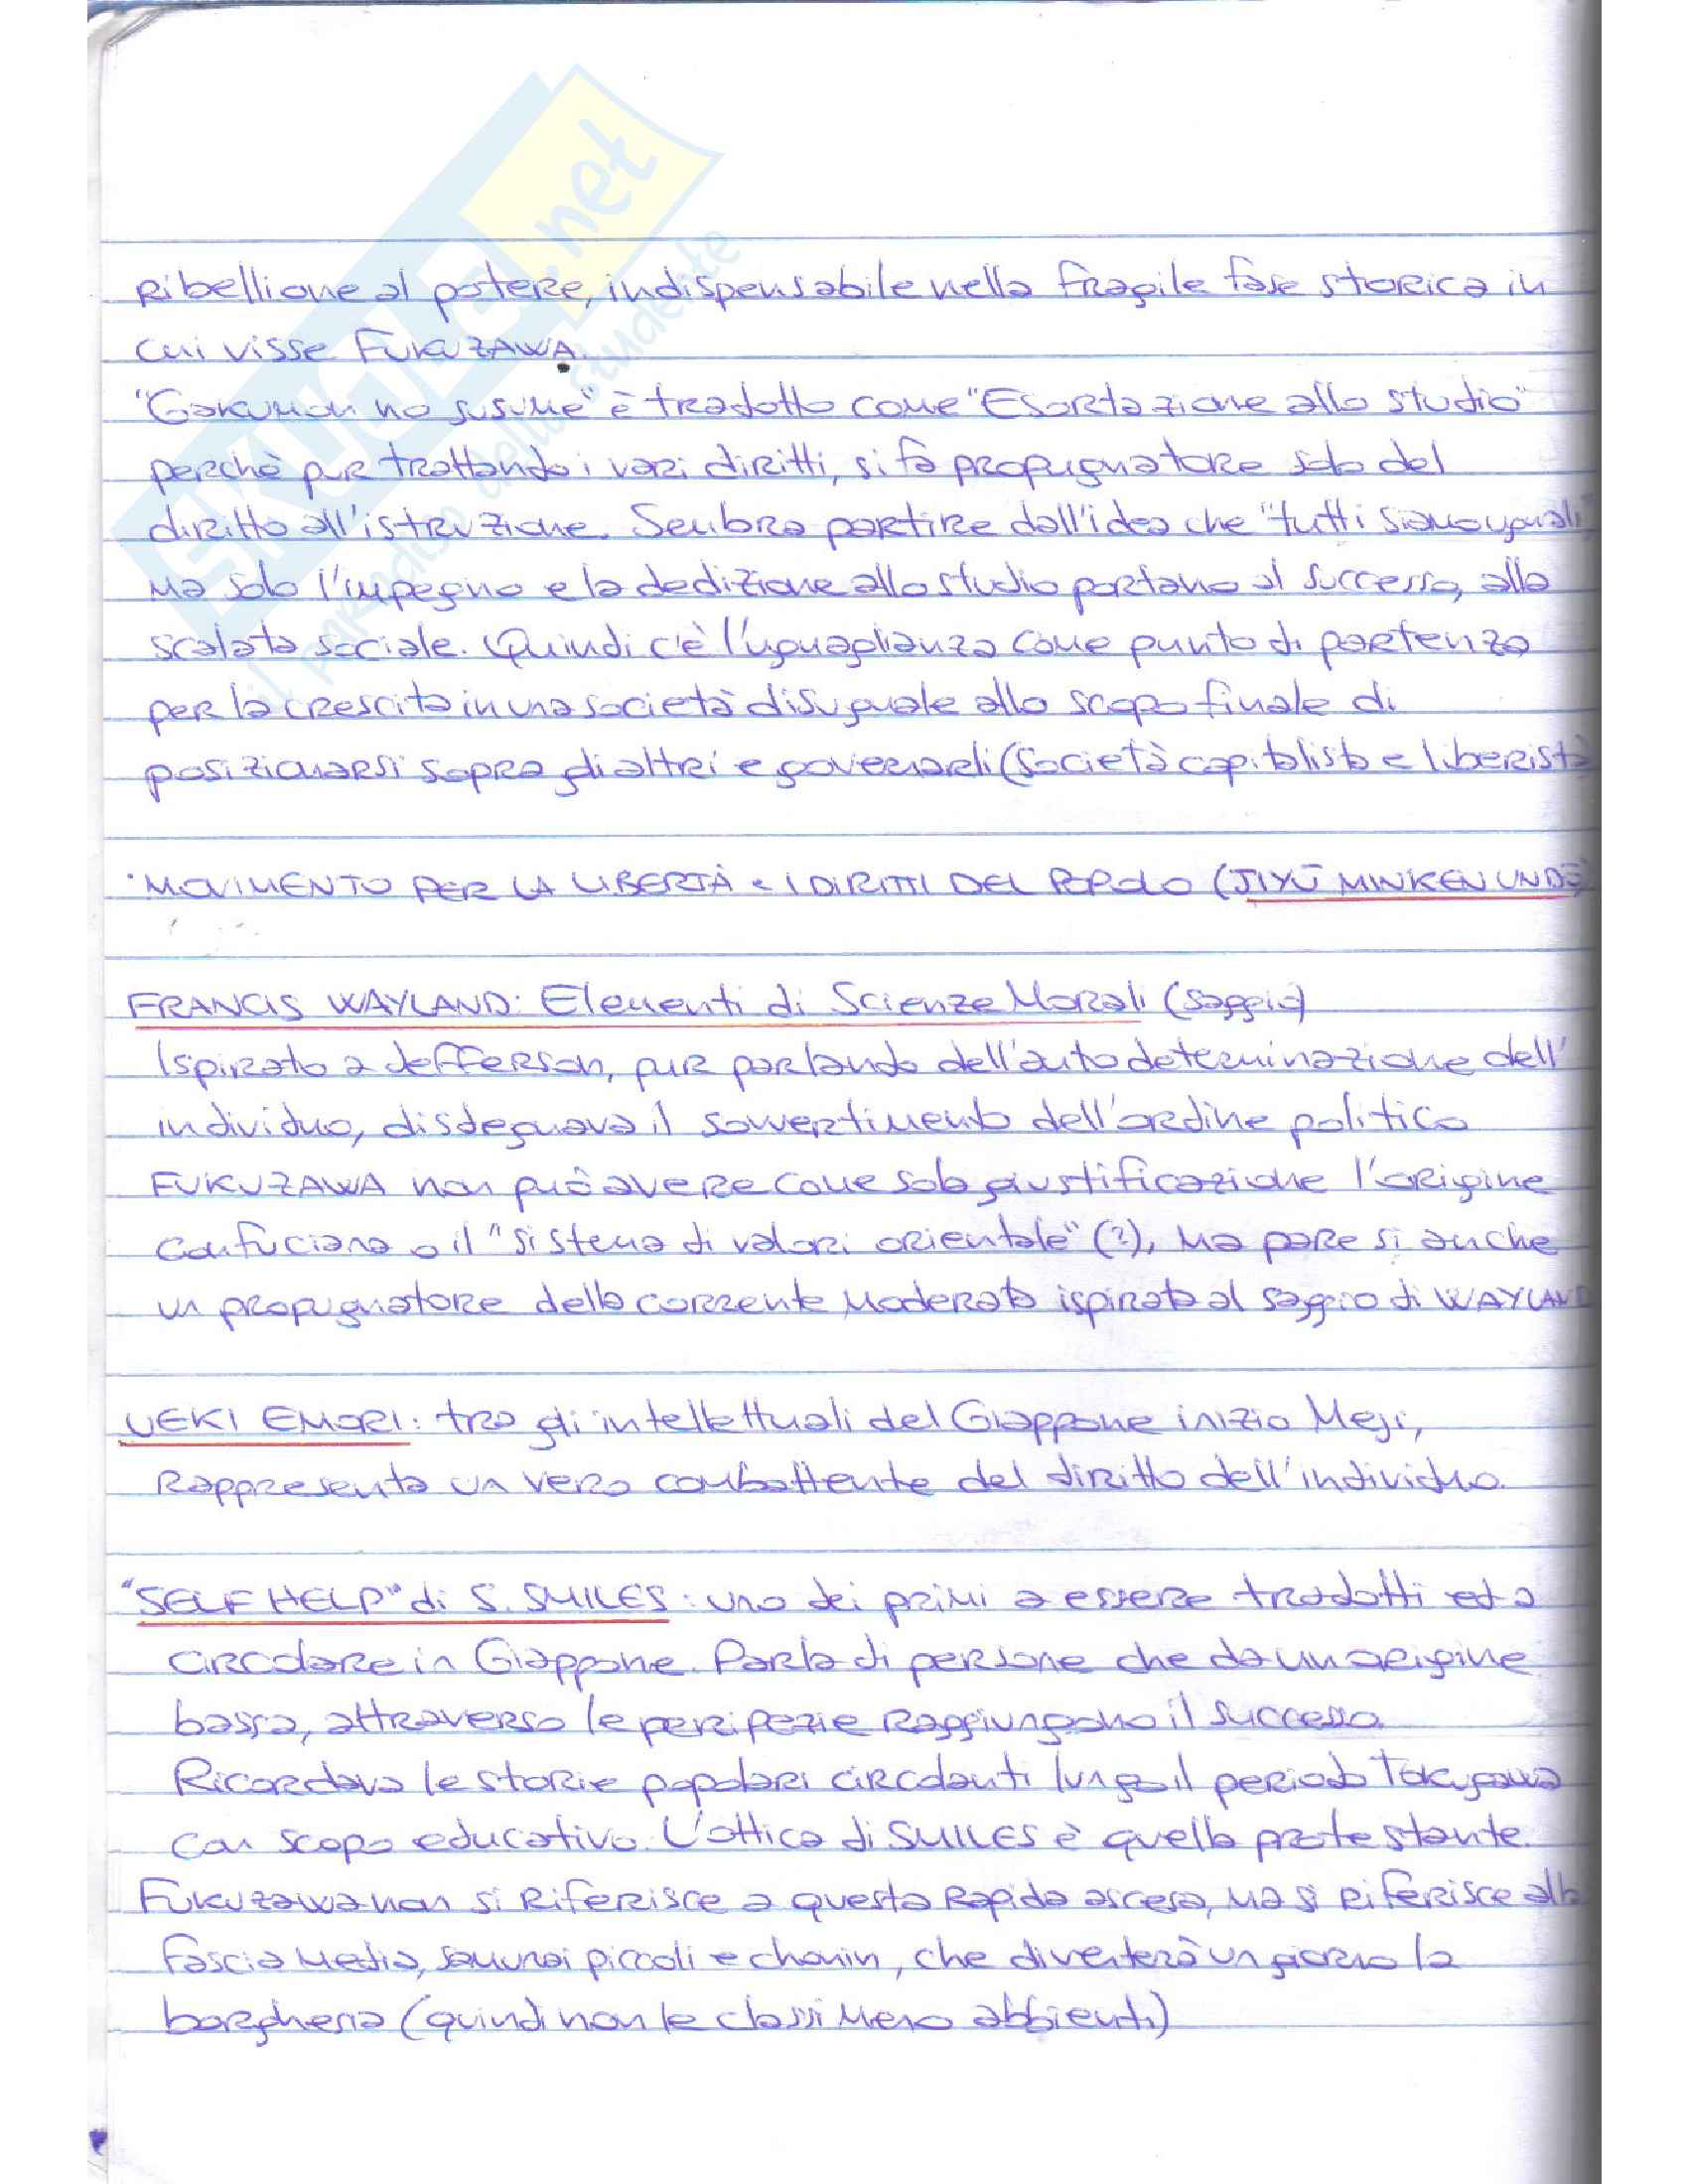 SKUOLA.net
il paradiso dello studente
Ribellione al potere, indispensabile nella fragile fase storica in
cui visse FUKUZAWA.
"Gakumon no susume" è tradotto come "Esortazione allo studio"
perchè pur trattando i vari diritti, si fa propugnatore solo del
diritto all'istruzione. Sembra partire dall'idea che "tutti siamo uguali"
ma solo l'impegno e la dedizione allo studio portano al successo, alla
scalata sociale. Quindi c'è l'uguaglianza come punto di partenza
per la crescita in una società disuguale allo scopo finale di
posizionarsi sopra gli altri e governarli (società capitalista e liberista
·MOVIMENTO PER LA LIBERTÀ e I DIRITTI DEL POPOLO (JIYŪ MINKEN UNDŌ)
FRANCIS WAYLAND: Elementi di Scienze Morali (saggio)
Ispirato a Jefferson, pur parlando dell'autodeterminazione dell'
individuo, disdegnava il sovvertimento dell'ordine politico
FUKUZAWA non può avere come sola giustificazione l'origine
confuciana o il "sistema di valori orientale" (?), ma pare si anche
un propugnatore della corrente moderata ispirata al saggio di WAYLAND
UEKI EMORI: tra gli intellettuali del Giappone inizio Meji,
Rappresenta un vero combattente del diritto dell'individuo.
"SELF HELP" di S. SMILES: uno dei primi a essere tradotti ed a
circolare in Giappone. Parla di persone che da un origine
bassa, attraverso le peripezie raggiungono il successo.
Ricordava le storie popolari circolanti lungo il periodo Tokugawa
con scopo educativo. L'ottica di SMILES è quella protestante.
Fukuzawa non si riferisce a questa rapida ascesa, ma si riferisce alla
fascia media, samurai piccoli e chonin, che diventerà un giorno la
borghesia (quindi non le classi meno abbienti)